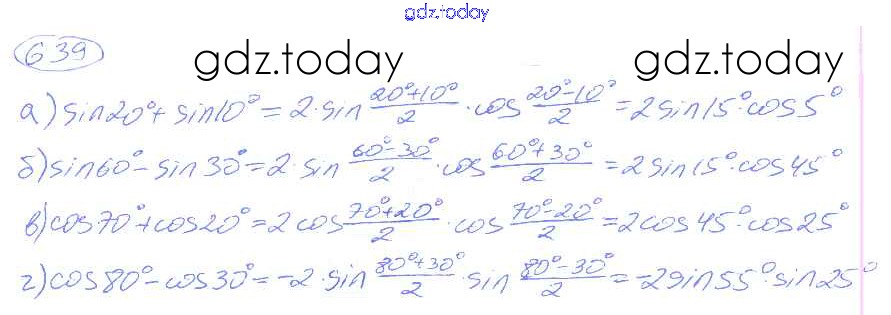 gdz.today
639
gdz.today gdz.today
а) sin20°+ sin10° = 2·sin (20°+10°)/2 · cos (20°-10°)/2 = 2sin15°·cos5°
б) sin60°- sin30° = 2·sin (60°-30°)/2 · cos (60°+30°)/2 = 2sin15°·cos45°
в) cos70°+cos20° = 2cos (70°+20°)/2 · cos (70°-20°)/2 = 2cos45°·cos25°
г) cos80°-cos30° = -2·sin (80°+30°)/2 · sin (80°-30°)/2 = -2sin55°·sin25°